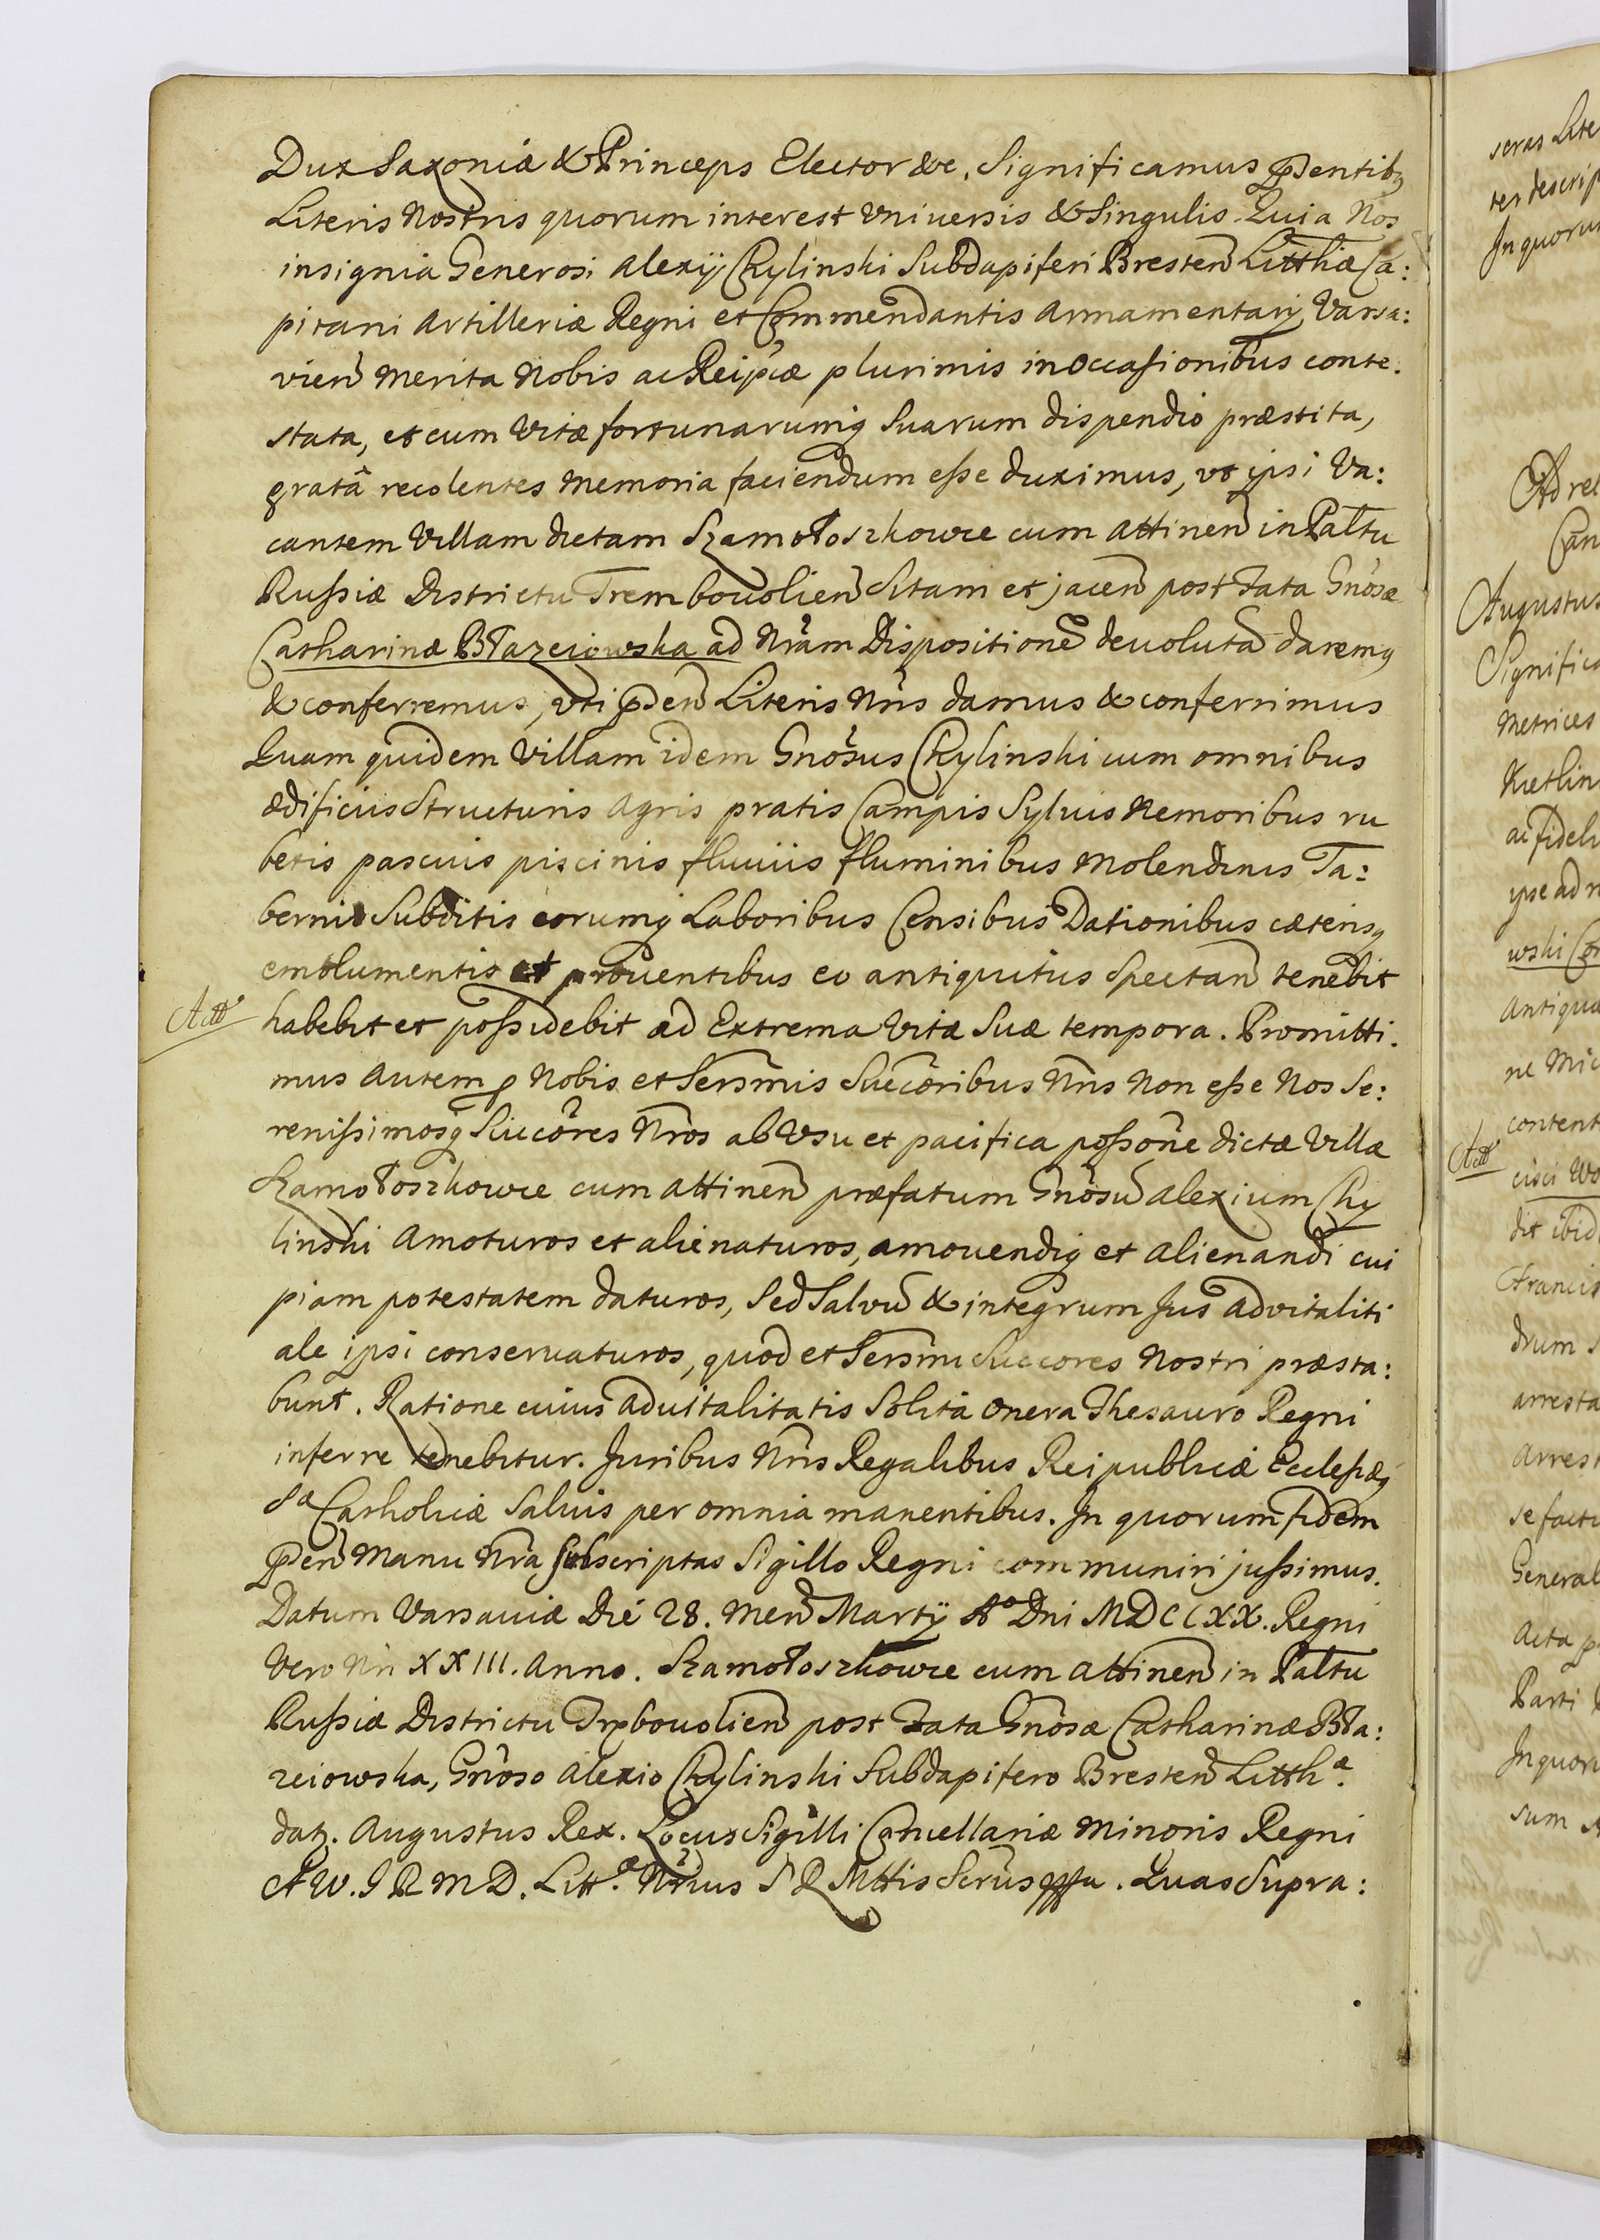 Dux Saxoniæ & Princeps Elector &c. Significamus pñtibq
Literis Nostris quorum interest Vniuersis & Singulis. Quia Nos
insignia Generosi Alexij Chylinski Subdapiferi Bresten Litthæ Ca:
pitani Artilleriæ Regni et Commendantis Armamentarij Varsa:
vien merita Nobis ac Reipcæ plurimis in occasionibus conte.
stata, et cum Vitæ fortunarumq suarum dispendio præstita,
gratâ recolentes memoria faciendum esse duximus, vt ipsi Va:
cantem Villam dictam Szamotoszkowce cum attinen in Paltu
Russiæ Districtu Trembouolien Sitam et jacen post Fata Gnosæ
Catharinæ Błazeiowska ad Nram Dispositione deuoluta daremq
& conferremus, vti pñden Literis Nris damus & conferimus
Quam quidem Villam idem Gnosus Chylinski cum omnibus
ædificiis Structuris Agris pratis Campis Syluis Nemoribus ru
betis pascuis piscinis fluuiis fluminibus Molendinis Ta:
bernis Subditis eorumq Laboribus Censibus Dationibus cæterisq
emolumentis et prouentibus eo antiquitus Spectan tenebit
Att habebit et possidebit ad Extrema Vitæ Suæ tempora. Promitti.
mus autem p Nobis et Sersmis Succoribus Nris Non esse Nos Se:
renissimosq Succores Nros ab Vsu et pacifica possone dictæ Villæ
Szamotoszkowce cum attinen præfatum Gnosu Alexium Chy
linski Amoturos et alienaturos, amouendiq et alienandi cui
piam potestatem daturos, Sed Salvu & integrum Jus advitaliti
ale ipsi conseruaturos, quod et Sersmi Succores Nostri præsta:
bunt. Ratione cuius aduitalitatis Solita onera Thesauro Regni
inferre tenebitur. Juribus Nris Regalibus Reipublicæ Eccleshæq
Sæ Catholicæ Saluis per omnia manentibus. In quorum fidem
pñden Manu Nra Subscriptas Sigillo Regni communiri jussimus.
Datum Varsauiæ Die 28. Men Martij Ao Dni MDCCXX. Regni
Vero Nri XXIII. Anno. Szamotoszkowce cum attinen in Paltu
Russiæ Districtu Trxbouolien post Fata Gnosæ Catharinæ Bła:
zeiowska, Gnoso Alexio Chylinski Subdapifero Bresten Litthæ.
datq. Augustus Rex. Locus Sigilli Cancellariæ Minoris Regni
A W. J R M D. Littæ. Nrius S R Mttis Scrius mppa. Quas Supra: